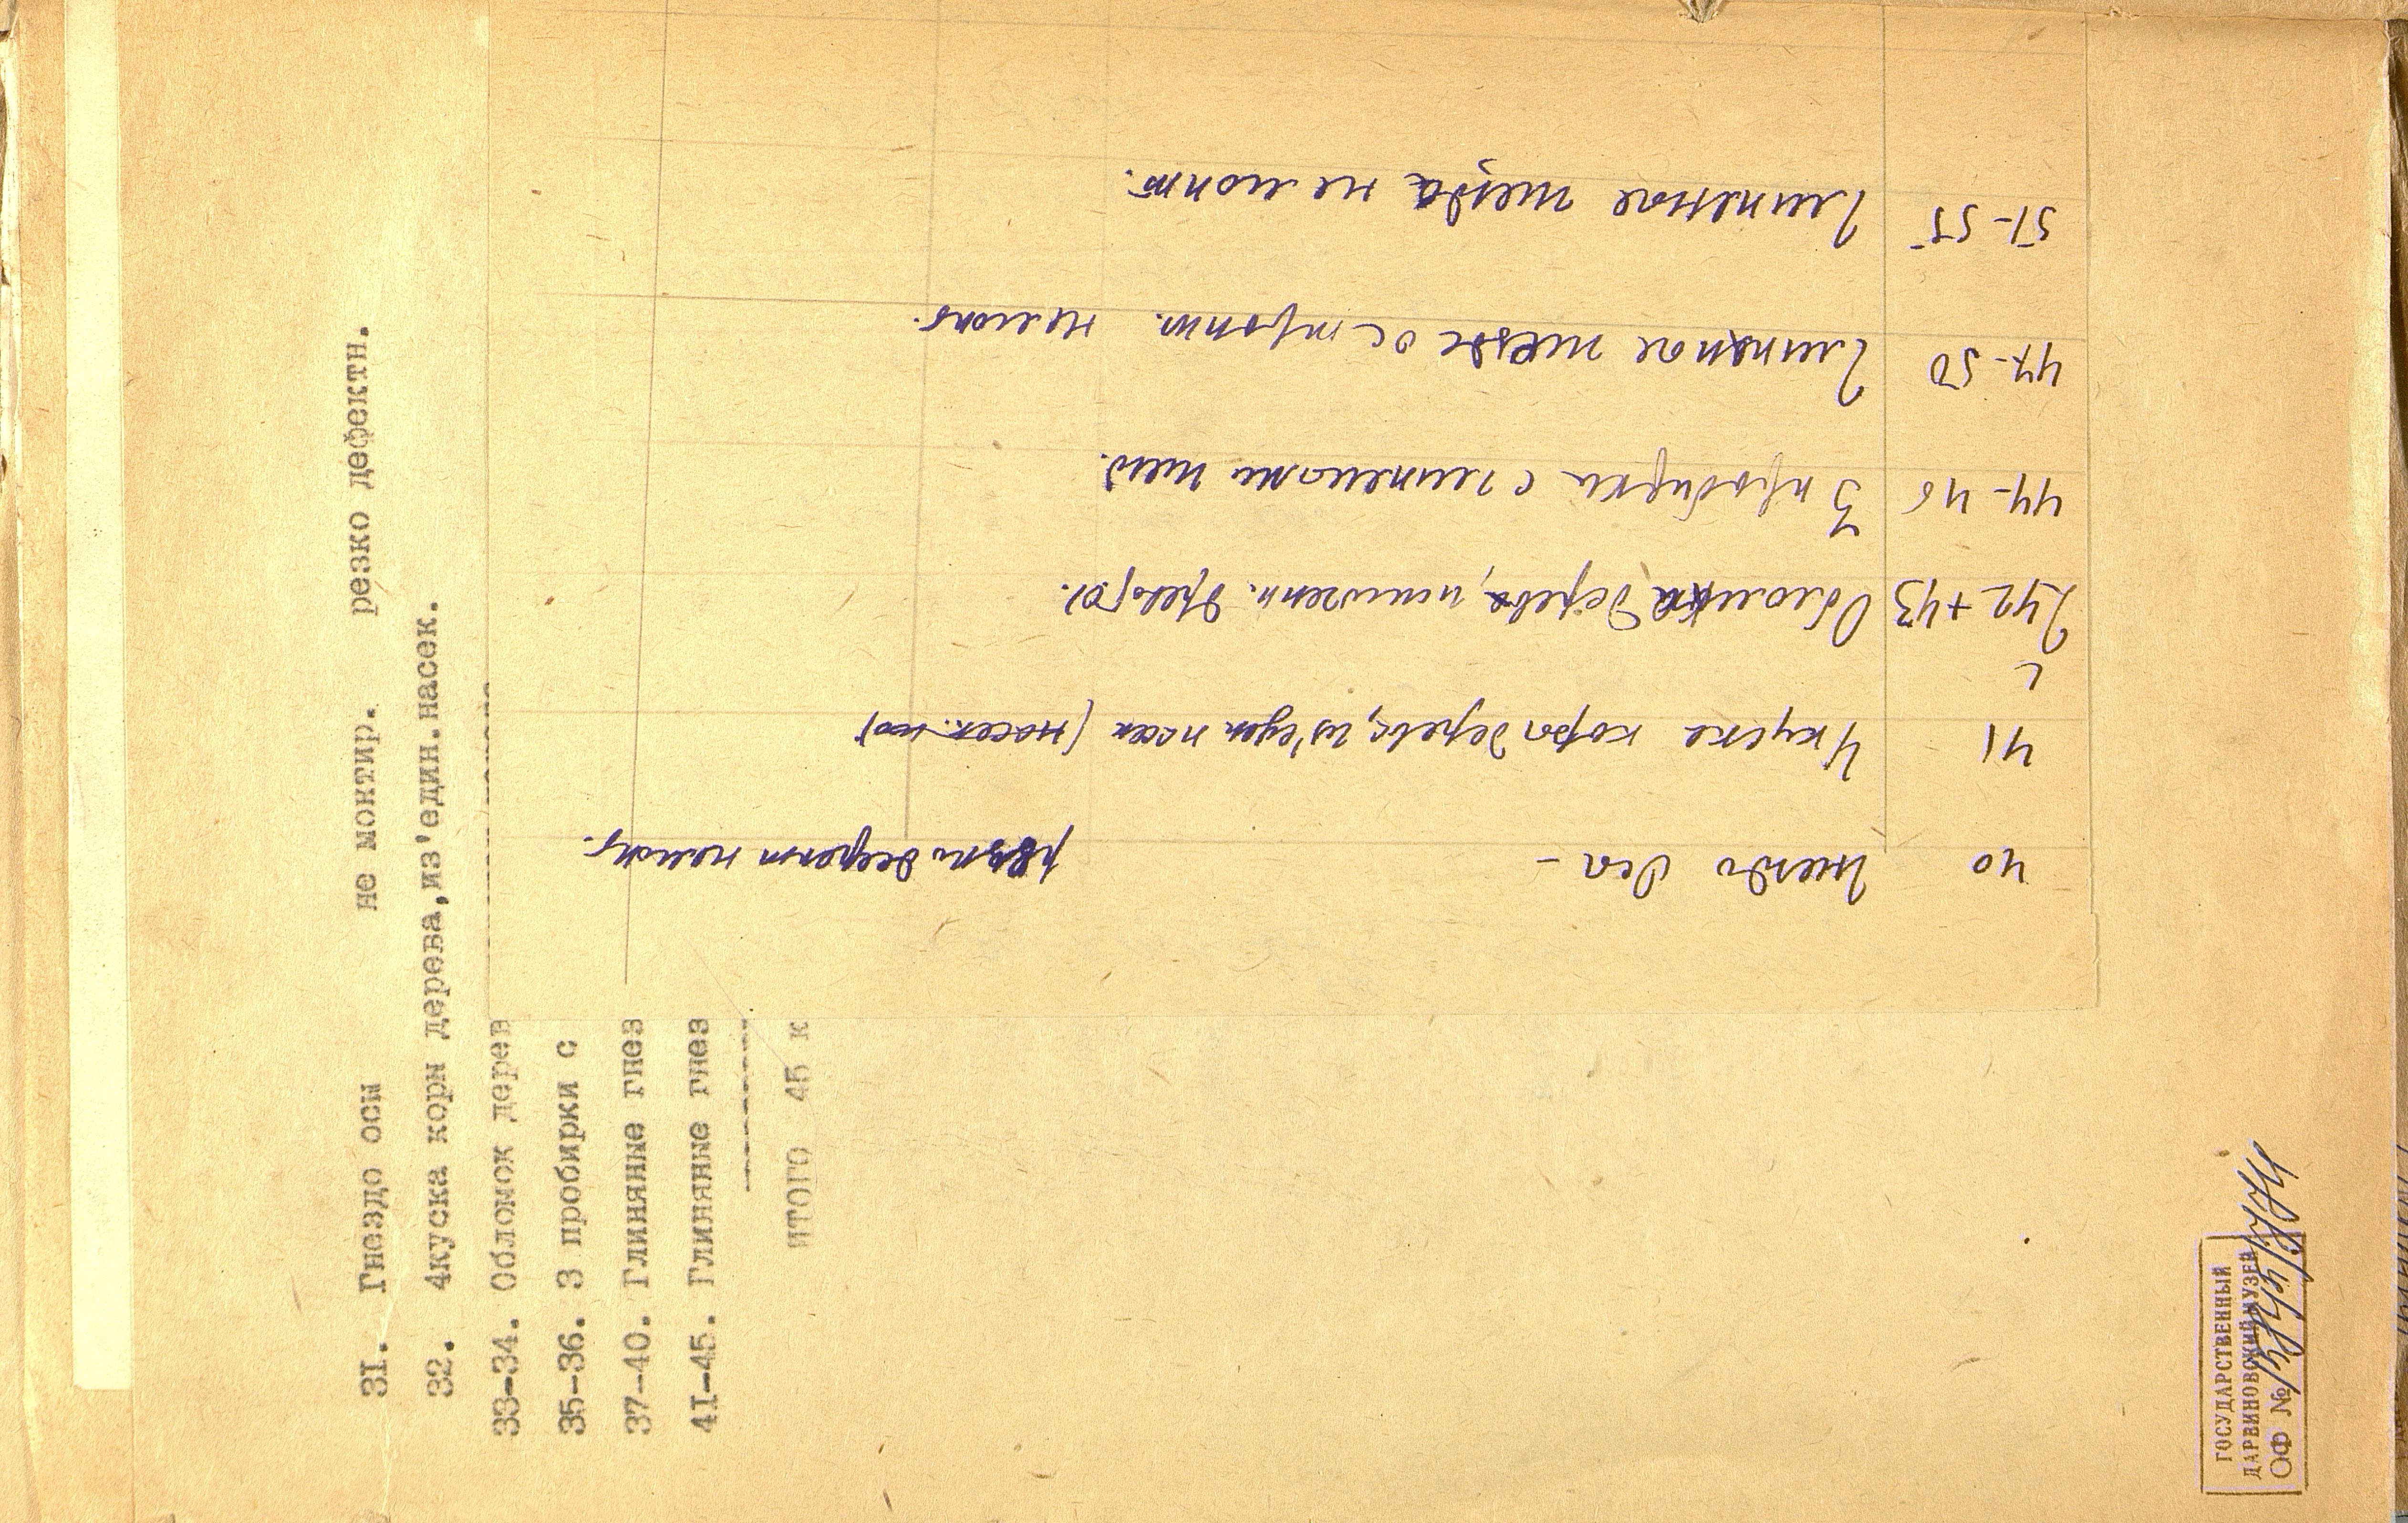 31. Гнездо осы не монтир. резко дефектн.
32. 4куска коры дерева,из'един.насек.
33-34. Обломок дерев
35-36. 3 пробирки с
37-40. Глиняные гнез
41-45. Глиняные гнез
ИТОГО 45 к
40 Гнездо осы – резко дефект
41 4 куска коры дерева, из'един насек
42+43 Обломка дерева,
44-46 3 пробирки с
47-50 Глиняное гнездо ос
51-55 Глиняное гнезда не монт.
ГОСУДАРСТВЕННЫЙ
ДАРВИНОВСКИЙ МУЗЕЙ
ОФ №